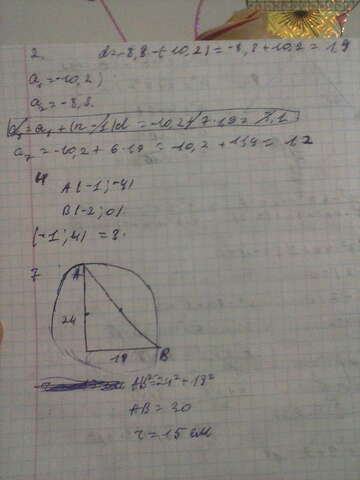 2. d=-8,8-(-10,2)=-8,8+10,2=19
a₁=-10,2)
a₂=-8,8.
a₇=-10,2+6·19=-10,2+114=12
4
A(-1;-4)
B(-2;0)
(-1;4) =3.
7
A
24
18
B
AB²=24²+18²
AB=30
r=15см